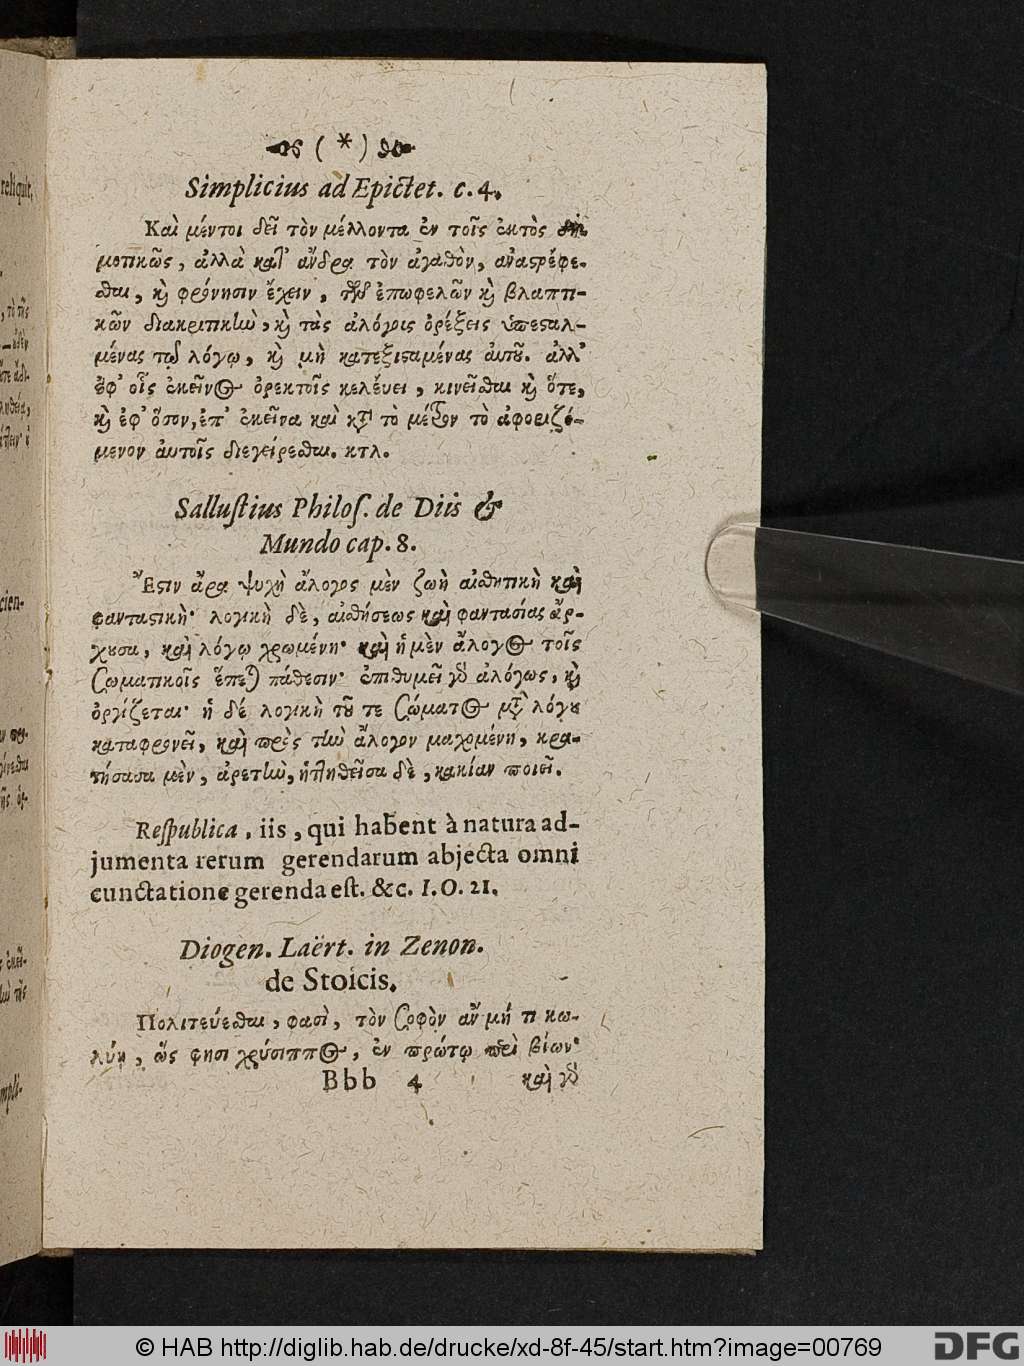 ( * )
Simplicius ad Epictet. c. 4.
Καὶ μέντοι δεῖ τὸν μέλλοντα ἐν τοῖς ἐκτὸς μὴ
μοτικῶς, ἀλλὰ κατ' ἄνδρα τὸν ἀγαθὸν, ἀναστρέφε-
σθαι, καὶ φρόνησιν ἔχειν, τῶν ἐπωφελῶν καὶ βλαπτι-
κῶν διακριτικὴν, καὶ τὰς ἀλόγους ὀρέξεις ὑπεσταλ-
μένας τῷ λόγῳ, καὶ μὴ κατεξισαμένας αὐτοῦ. ἀλλ'
ἐφ' οἷς ἐκεῖνος ὀρεκτοῖς κελεύει, κινεῖσθαι καὶ ὅτε,
καὶ ἐφ' ὅσον, ἐπ' ἐκεῖνα καὶ κατὰ τὸ μέτρον τὸ ἀφοριζό-
μενον αὐτοῖς διεγείρεσθαι. κτλ.
Sallustius Philos. de Diis &
Mundo cap. 8.
Ἔστιν ἄρα ψυχὴ ἄλογος μὲν ζωὴ αἰσθητικὴ καὶ
φανταστικὴ· λογικὴ δὲ, αἰσθήσεως καὶ φαντασίας ἄρ-
χουσα, καὶ λόγῳ χρωμένη· καὶ ἡ μὲν ἄλογος τοῖς
σωματικοῖς ἕπεται πάθεσιν· ἐπιθυμεῖ γὰρ ἀλόγως, καὶ
ὀργίζεται· ἡ δέ λογικὴ τοῦ τε σώματος μετὰ λόγου
καταφρονεῖ, καὶ πρὸς τὴν ἄλογον μαχομένη, κρα-
τήσασα μὲν, ἀρετὴν, ἡττηθεῖσα δὲ, κακίαν ποιεῖ.
Respublica, iis, qui habent à natura ad-
jumenta rerum gerendarum abjecta omni
cunctatione gerenda est. &c. 1. O. 21.
Diogen. Laërt. in Zenon.
de Stoicis.
Πολιτεύεσθαι, φασὶ, τὸν σοφὸν ἂν μή τι κω-
λύῃ, ὥς φησι χρύσιππος, ἐν πρώτῳ περὶ βίων·
Bbb 4 καὶ γὰρ
reliquit,
cien-
© HAB http://diglib.hab.de/drucke/xd-8f-45/start.htm?image=00769
DFG